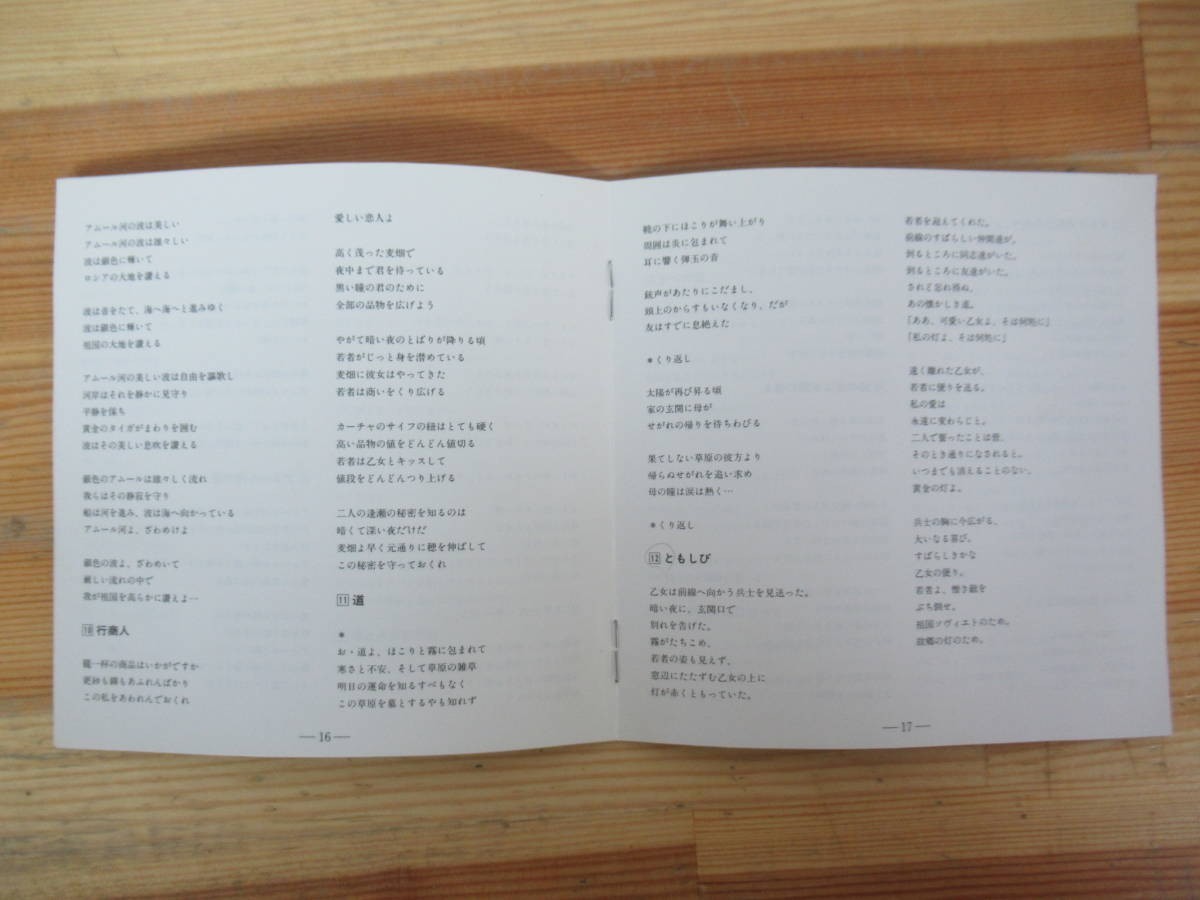 アムール河の波は美しい
アムール河の波は雄々しい
波は銀色に輝いて
ロシアの大地を讃える
波は音をたて、海へ海へと進みゆく
波は銀色に輝いて
祖国の大地を讃える
アムール河の美しい波は自由を謳歌し
河岸はそれを静かに見守り
平静を保ち
黄金のタイガがまわりを囲む
波はその美しい息吹を讃える
銀色のアムールは雄々しく流れ
我らはその静寂を守り
船は河を進み、波は海へ向かっている
アムール河よ、ざわめけよ
銀色の波よ、ざわめいて
厳しい流れの中で
我が祖国を高らかに讃えよ…
10 行商人
籠一杯の商品はいかがですか
更紗も錦もあふれんばかり
この私をあわれんでおくれ
愛しい恋人よ
高く茂った麦畑で
夜中まで君を待っている
黒い瞳の君のために
全部の品物を広げよう
やがて暗い夜のとばりが降りる頃
若者がじっと身を潜めている
麦畑に彼女はやってきた
若者は商いをくり広げる
カーチャのサイフの紐はとても硬く
高い品物の値をどんどん値切る
若者は乙女とキッスして
値段をどんどんつり上げる
二人の逢瀬の秘密を知るのは
暗くて深い夜だけだ
麦畑よ早く元通りに穂を伸ばして
この秘密を守っておくれ
11 道
*
お・道よ、ほこりと霧に包まれて
寒さと不安、そして草原の雑草
明日の運命を知るすべもなく
この草原を墓とするやも知れず
—16—
靴の下にほこりが舞い上がり
周囲は炎に包まれて
耳に響く弾玉の音
銃声があたりにこだまし、
頭上のからすもいなくなり、だが
友はすでに息絶えた
*くり返し
太陽が再び昇る頃
家の玄関に母が
せがれの帰りを待ちわびる
果てしない草原の彼方より
帰らぬせがれを追い求め
母の瞳は涙は熱く…
*くり返し
12 ともしび
乙女は前線へ向かう兵士を見送った。
暗い夜に、玄関口で
別れを告げた。
霧がたちこめ、
若者の姿も見えず、
窓辺にたたずむ乙女の上に
灯が赤くともっていた。
若者を迎えてくれた。
前線のすばらしい仲間達が。
到るところに同志達がいた。
到るところに友達がいた。
されど忘れ得ぬ、
あの懐かしき道。
「ああ、可愛い乙女よ、そは何処に」
「私の灯よ、そは何処に」
遠く離れた乙女が、
若者に便りを送る。
私の愛は
永遠に変わらじと。
二人で誓ったことは皆、
そのとき通りになされると。
いつまでも消えることのない、
黄金の灯よ。
兵士の胸に今広がる、
大いなる喜び。
すばらしきかな
乙女の便り。
若者よ、憎き敵を
ぶち倒せ。
祖国ソヴィエトのため。
故郷の灯のため。
—17—